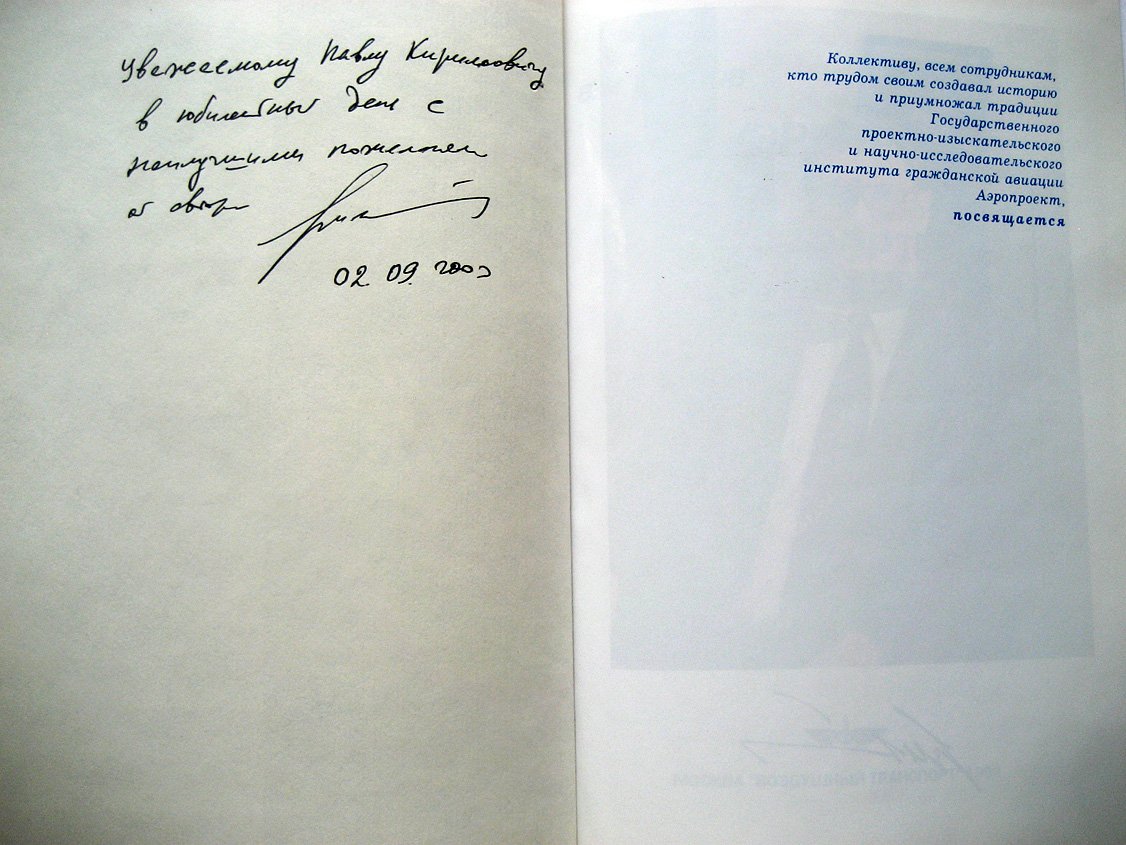 Уважаемому Павлу Кирилловичу
в юбилейный день с
наилучшими пожеланиями
от автора
02.09.2003
Коллективу, всем сотрудникам,
кто трудом своим создавал историю
и приумножал традиции
Государственного
проектно-изыскательского
и научно-исследовательского
института гражданской авиации
Аэропроект,
посвящается